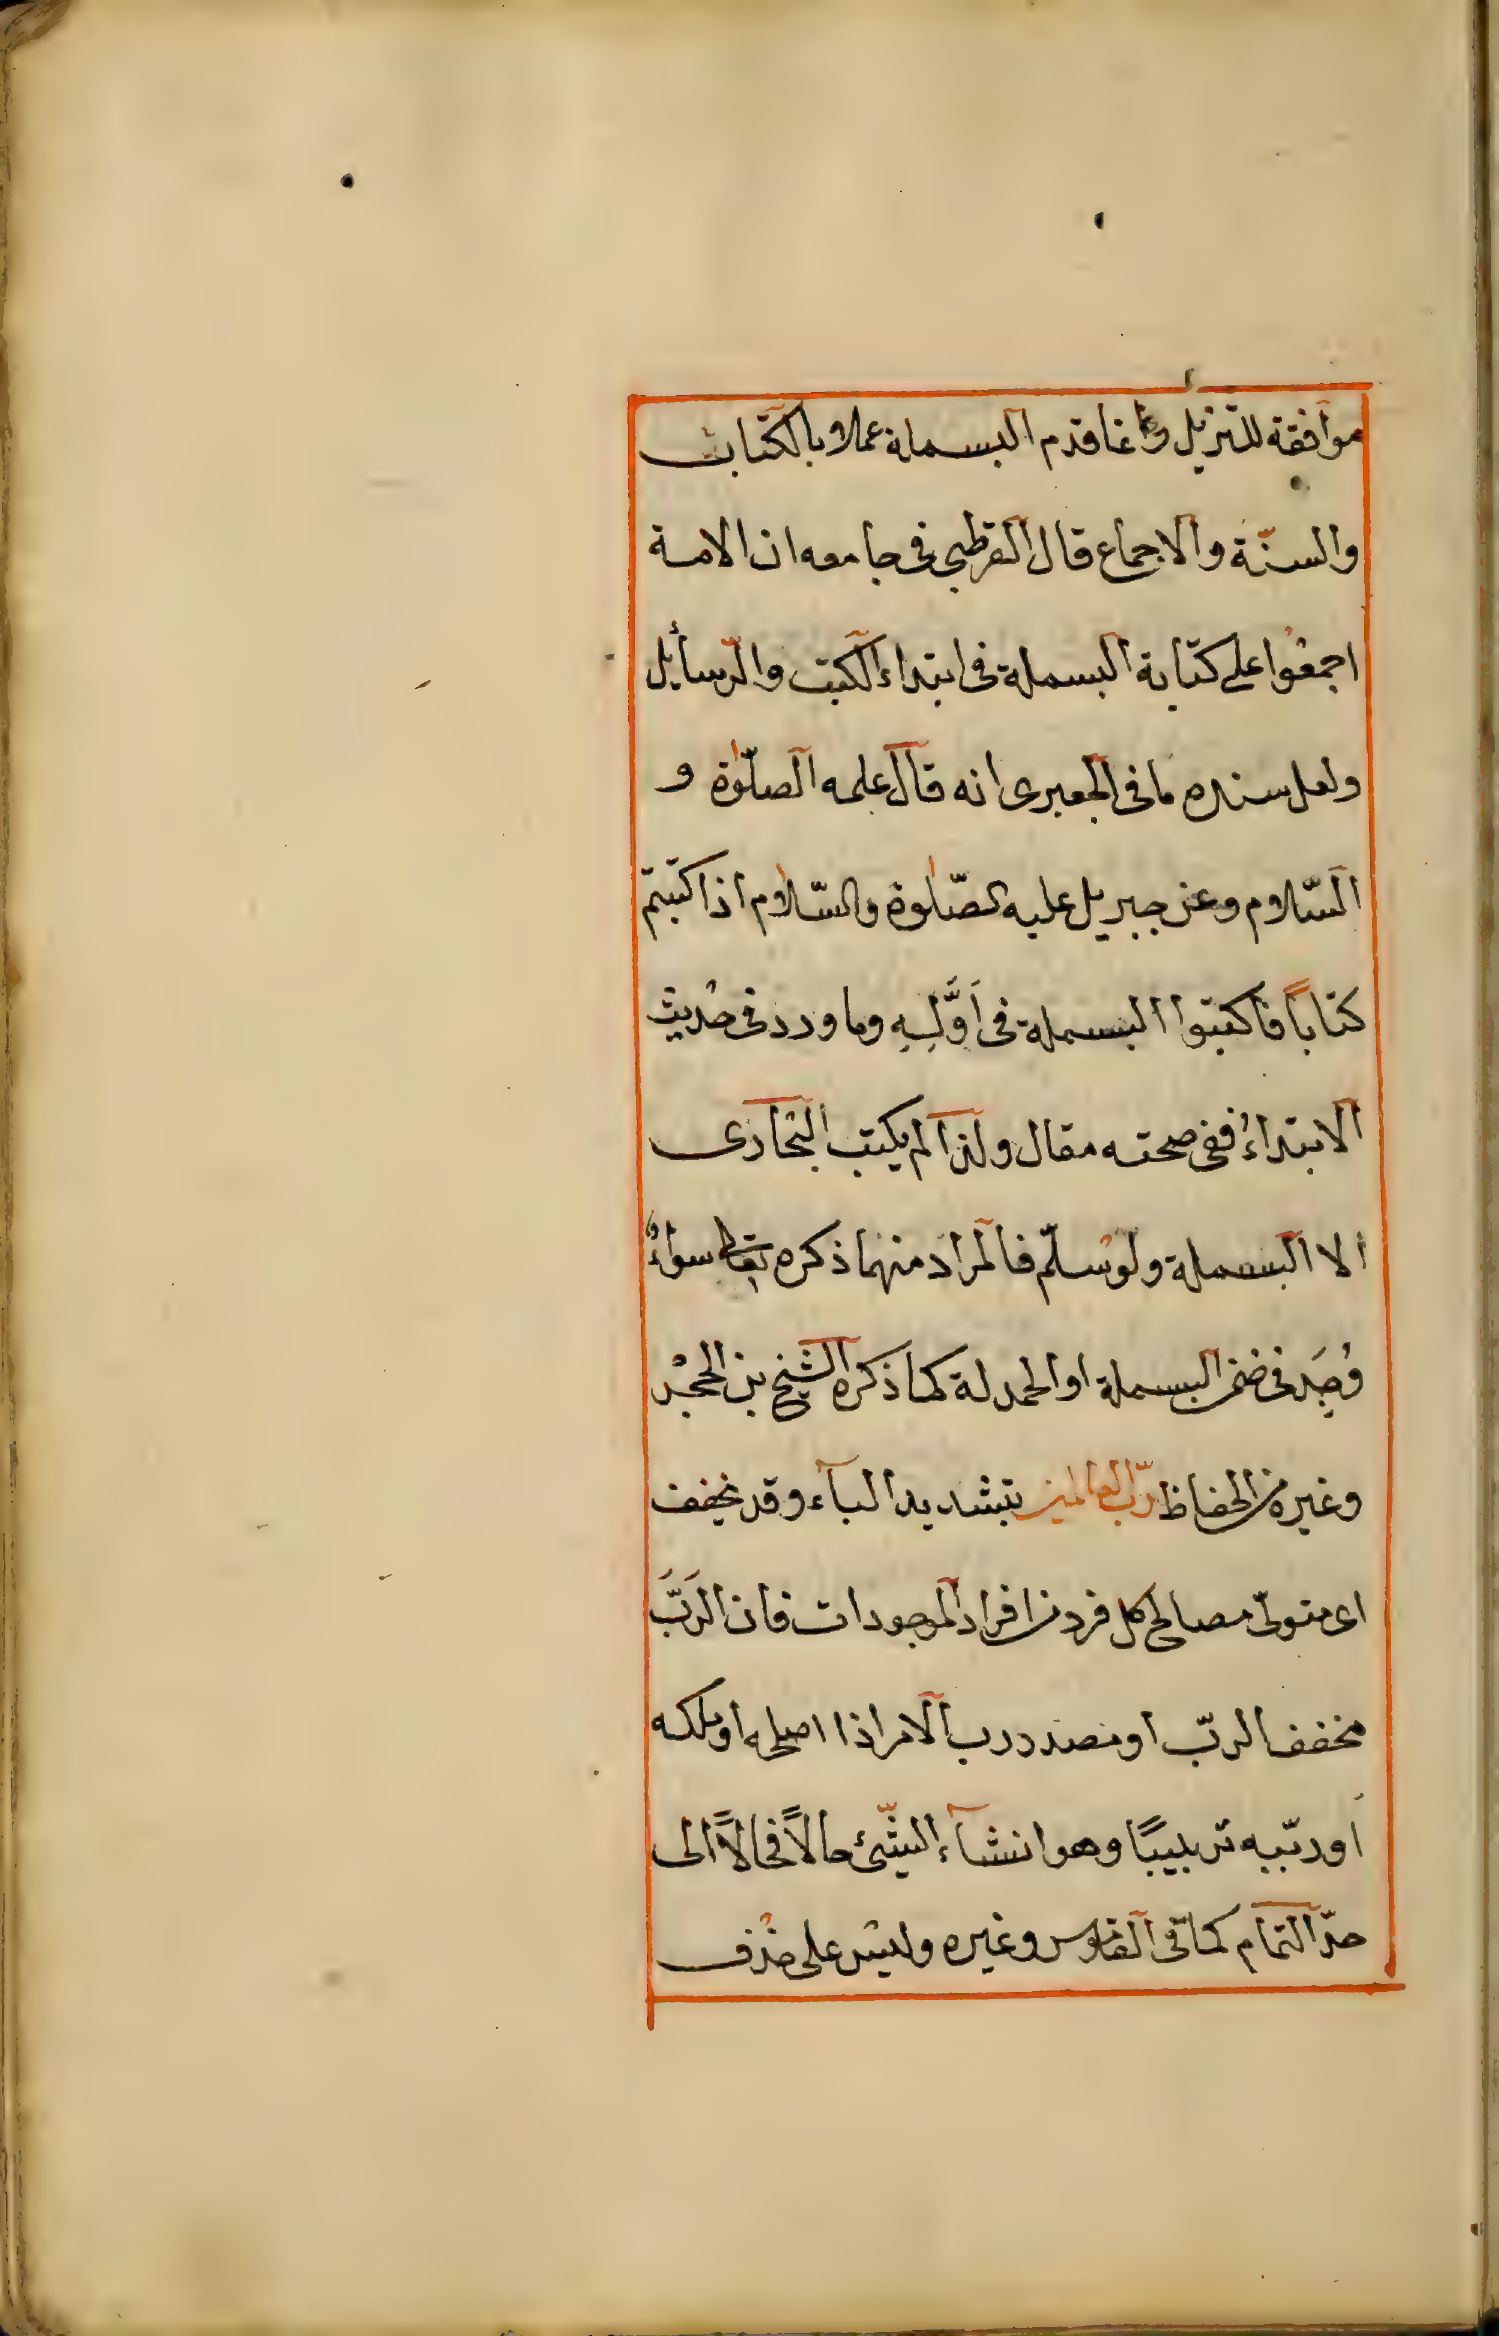 موافقة للتنزيل وانما قدم البسملة عملا بالكتاب
والسنّة والاجماع قال القرطبى فى جامعه ان الامة
اجمعوا على كتابة البسملة فى ابتداء الكتب والرّسائل
ولعل سنده ما فى الجعبرى انه قال عليه الصلٰوة و
السّلام وعن جبريل عليه الصّلٰوة والسّلام اذا كتبتم
كتاباً فاكتبوا البسملة فى اَوَّلِهِ وما ورد فى حديث
الابتداء ففى صحته مقال ولذا لم يكتب البخارى
الا البسملة ولو سلّم فالمراد منهما ذكره تعالى سواءٌ
وُجِدَ فى ضمن البسملة او الحمدلة كما ذكره الشيخ بن الحجر
وغيره من الحفاظ ربّ العالمين بتشديد الباء وقد يخفف
اى متولّى مصالح كل فرد من افراد الموجودات فان الرَبَّ
مخفف الربّ او مصدر رب الامر اذا اصلحه او ملكه
او ربّبه تربيبًا وهو انشآء الشّيئ حالاً فحالاً الى
حدّ التمام كما فى القاموس وغيره وليس على حذف